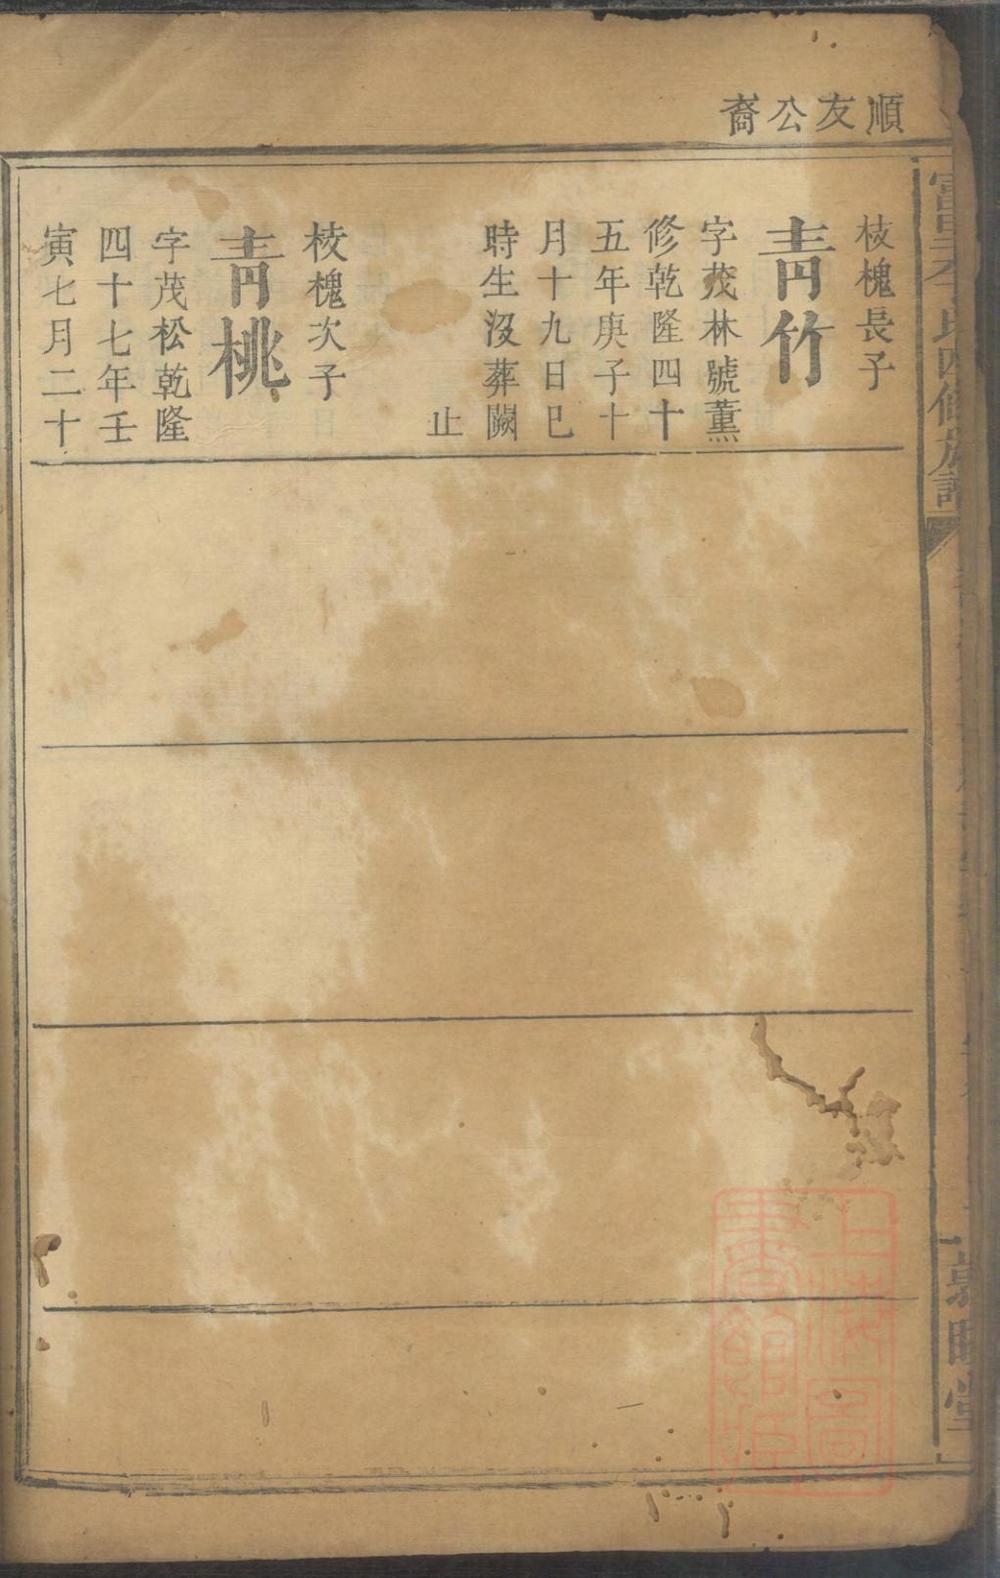 順友公裔
枝槐長子
青竹
字茂林號薰
修乾隆四十
五年庚子十
月十九日巳
時生沒葬闕
止
枝槐次子
青桃
字茂松乾隆
四十七年壬
寅七月二十
氏四修族譜
敦睦堂
上海圖書館藏